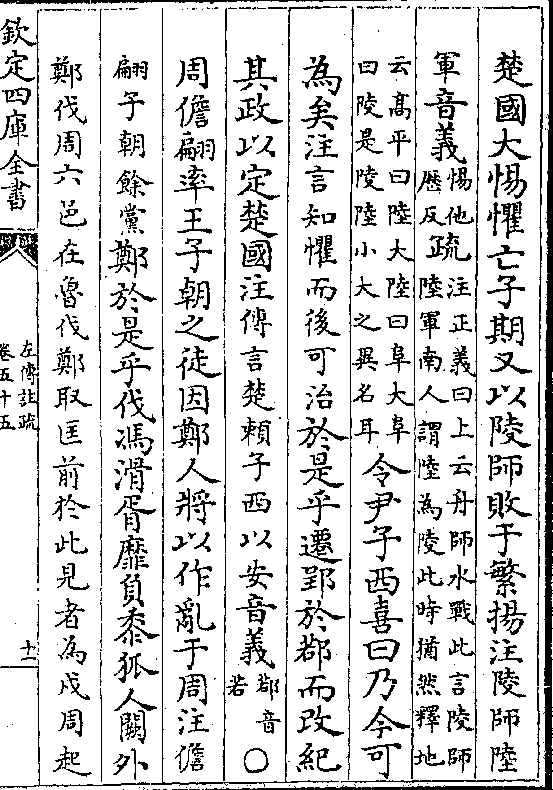 楚國大惕懼亡子期又以陵師敗于繁揚注陵師陸
軍音義惕他歷反疏注正義曰上云舟師水戰此言陵師陸軍南人謂陸為陵此時猶然釋地
云髙平曰陸大陸曰阜大阜曰陵是陵陸小大之異名耳令尹子西喜曰乃今可
為矣注言知懼而後可治於是乎遷郢於鄀而改紀
其政以定楚國注傳言楚賴子西以安音義鄀音若○
周儋翩率王子朝之徒因鄭人將以作亂于周注儋
翩子朝餘黨鄭於是乎伐馮滑胥靡負黍狐人闕外
鄭伐周六邑在魯伐鄭取匡前於此見者為戍周起
欽定四庫全書
左傳註疏
卷五十五
十一